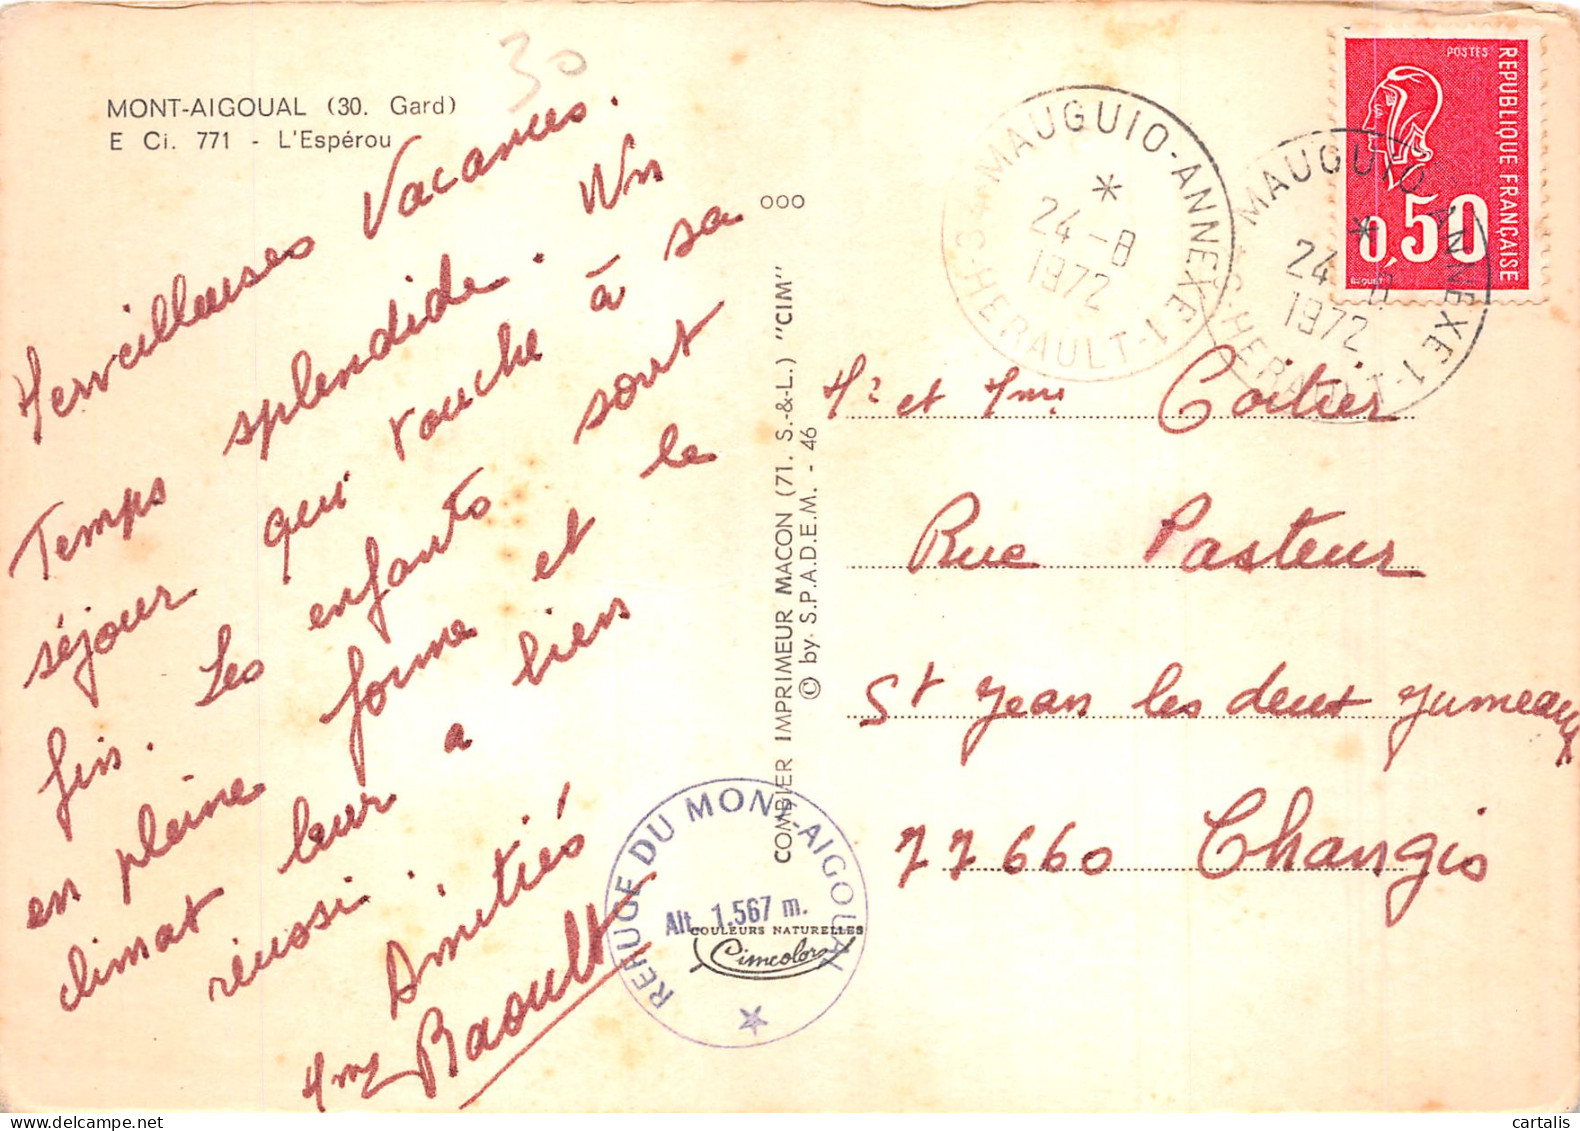 30
MONT-AIGOUAL (30. Gard)
E Ci. 771 - L'Espérou
Merveilleuses Vacances.
Temps splendide. Un
séjour qui touche à sa
fin. Les enfants sont
en pleine forme et le
climat leur a bien
réussi.
Amitiés
Mme Raoult
ooo
COMBIER IMPRIMEUR MACON (71. S.-&-L.) "CIM"
© by S.P.A.D.E.M. - 46
REFUGE DU MONT-AIGOUAL
Alt. 1.567 m.
COULEURS NATURELLES
Cimcolor
34-MAUGUIO-ANNEXE 1
*
24-8
1972
HERAULT
MAUGUIO ANNEXE 1
*
24-8
1972
HERAULT
POSTES
REPUBLIQUE FRANÇAISE
0,50
BEQUET
Mr et Mme Coitier
Rue Pasteur
St Jean les deux Jumeaux
77660 Changis
cartalis